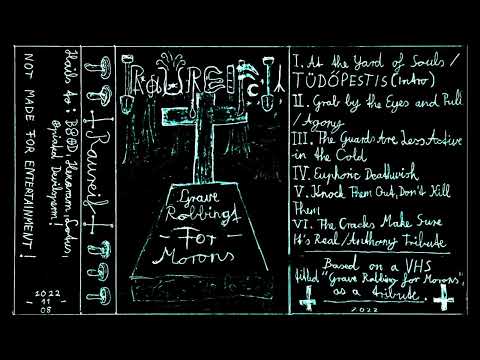 NOT MADE FOR ENTERTAINMENT!
2022
11
08
Rauheif
Grave
Robbings
-For-
Morons
I. At the Yard of Souls /
TÜDŐPESTIS (Intro)
II. Grab by the Eyes and Pull
/Agony
III. The Guards Are Less Active
in the Cold
IV. Euphoric Deathwish
V. Knock Them Out, Don't Kill
Them
VI. The Cracks Make Sure
It's Real/Anthony Tribute
Based on a VHS
titled "Grave Robbing for Morons",
as a tribute.
2022